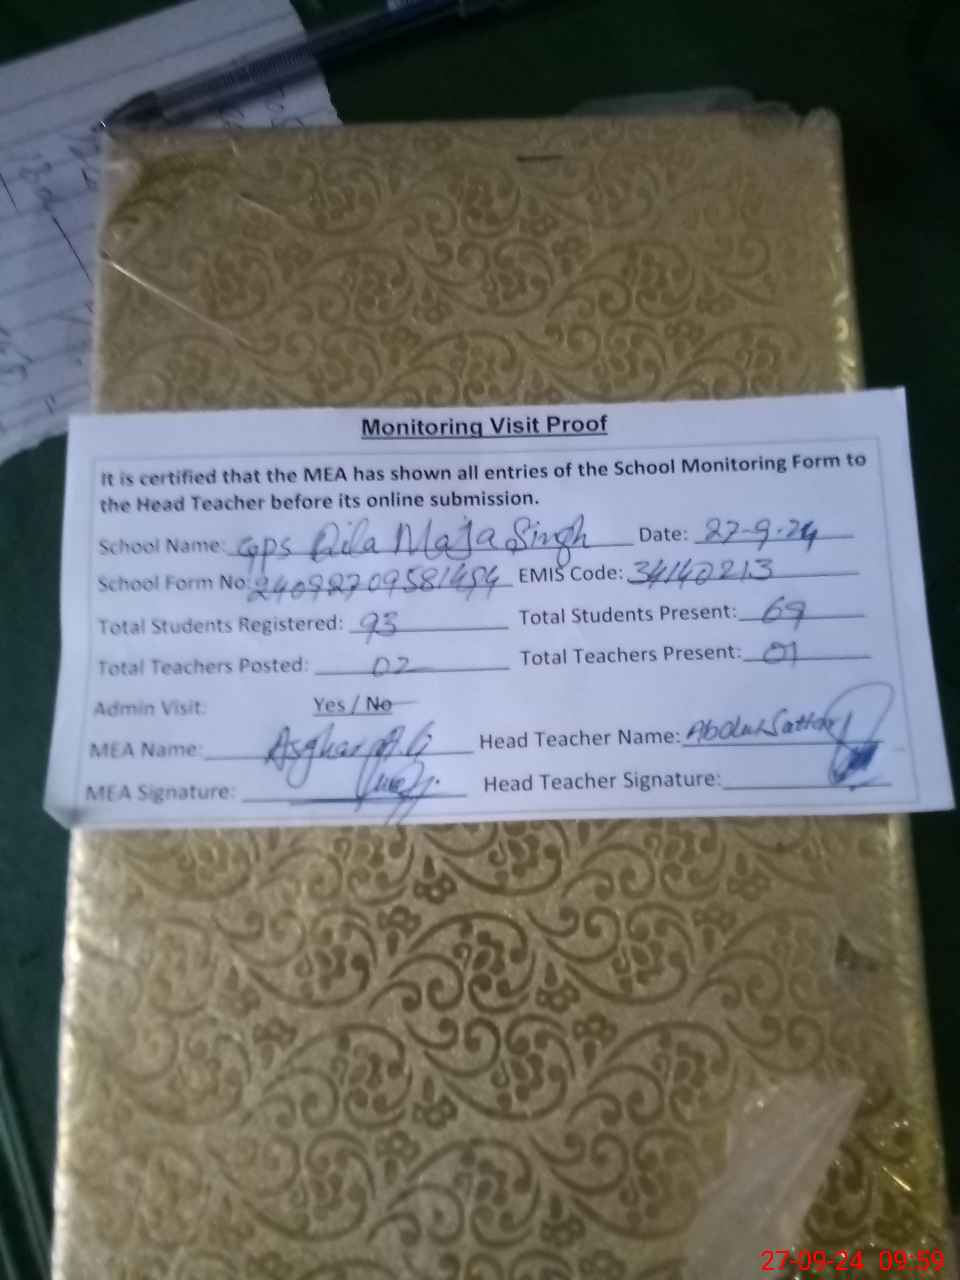 Monitoring Visit Proof
It is certified that the MEA has shown all entries of the School Monitoring Form to
the Head Teacher before its online submission.
School Name: GPS Qila Maja Singh Date: 27-9-24
School Form No: 24092709581454 EMIS Code: 34140213
Total Students Registered: 93 Total Students Present: 69
Total Teachers Posted: 02 Total Teachers Present: 01
Admin Visit: Yes / No
MEA Name: Asghar Ali Head Teacher Name: Abdul Sattar
MEA Signature: Head Teacher Signature:
27-09-24 09:59